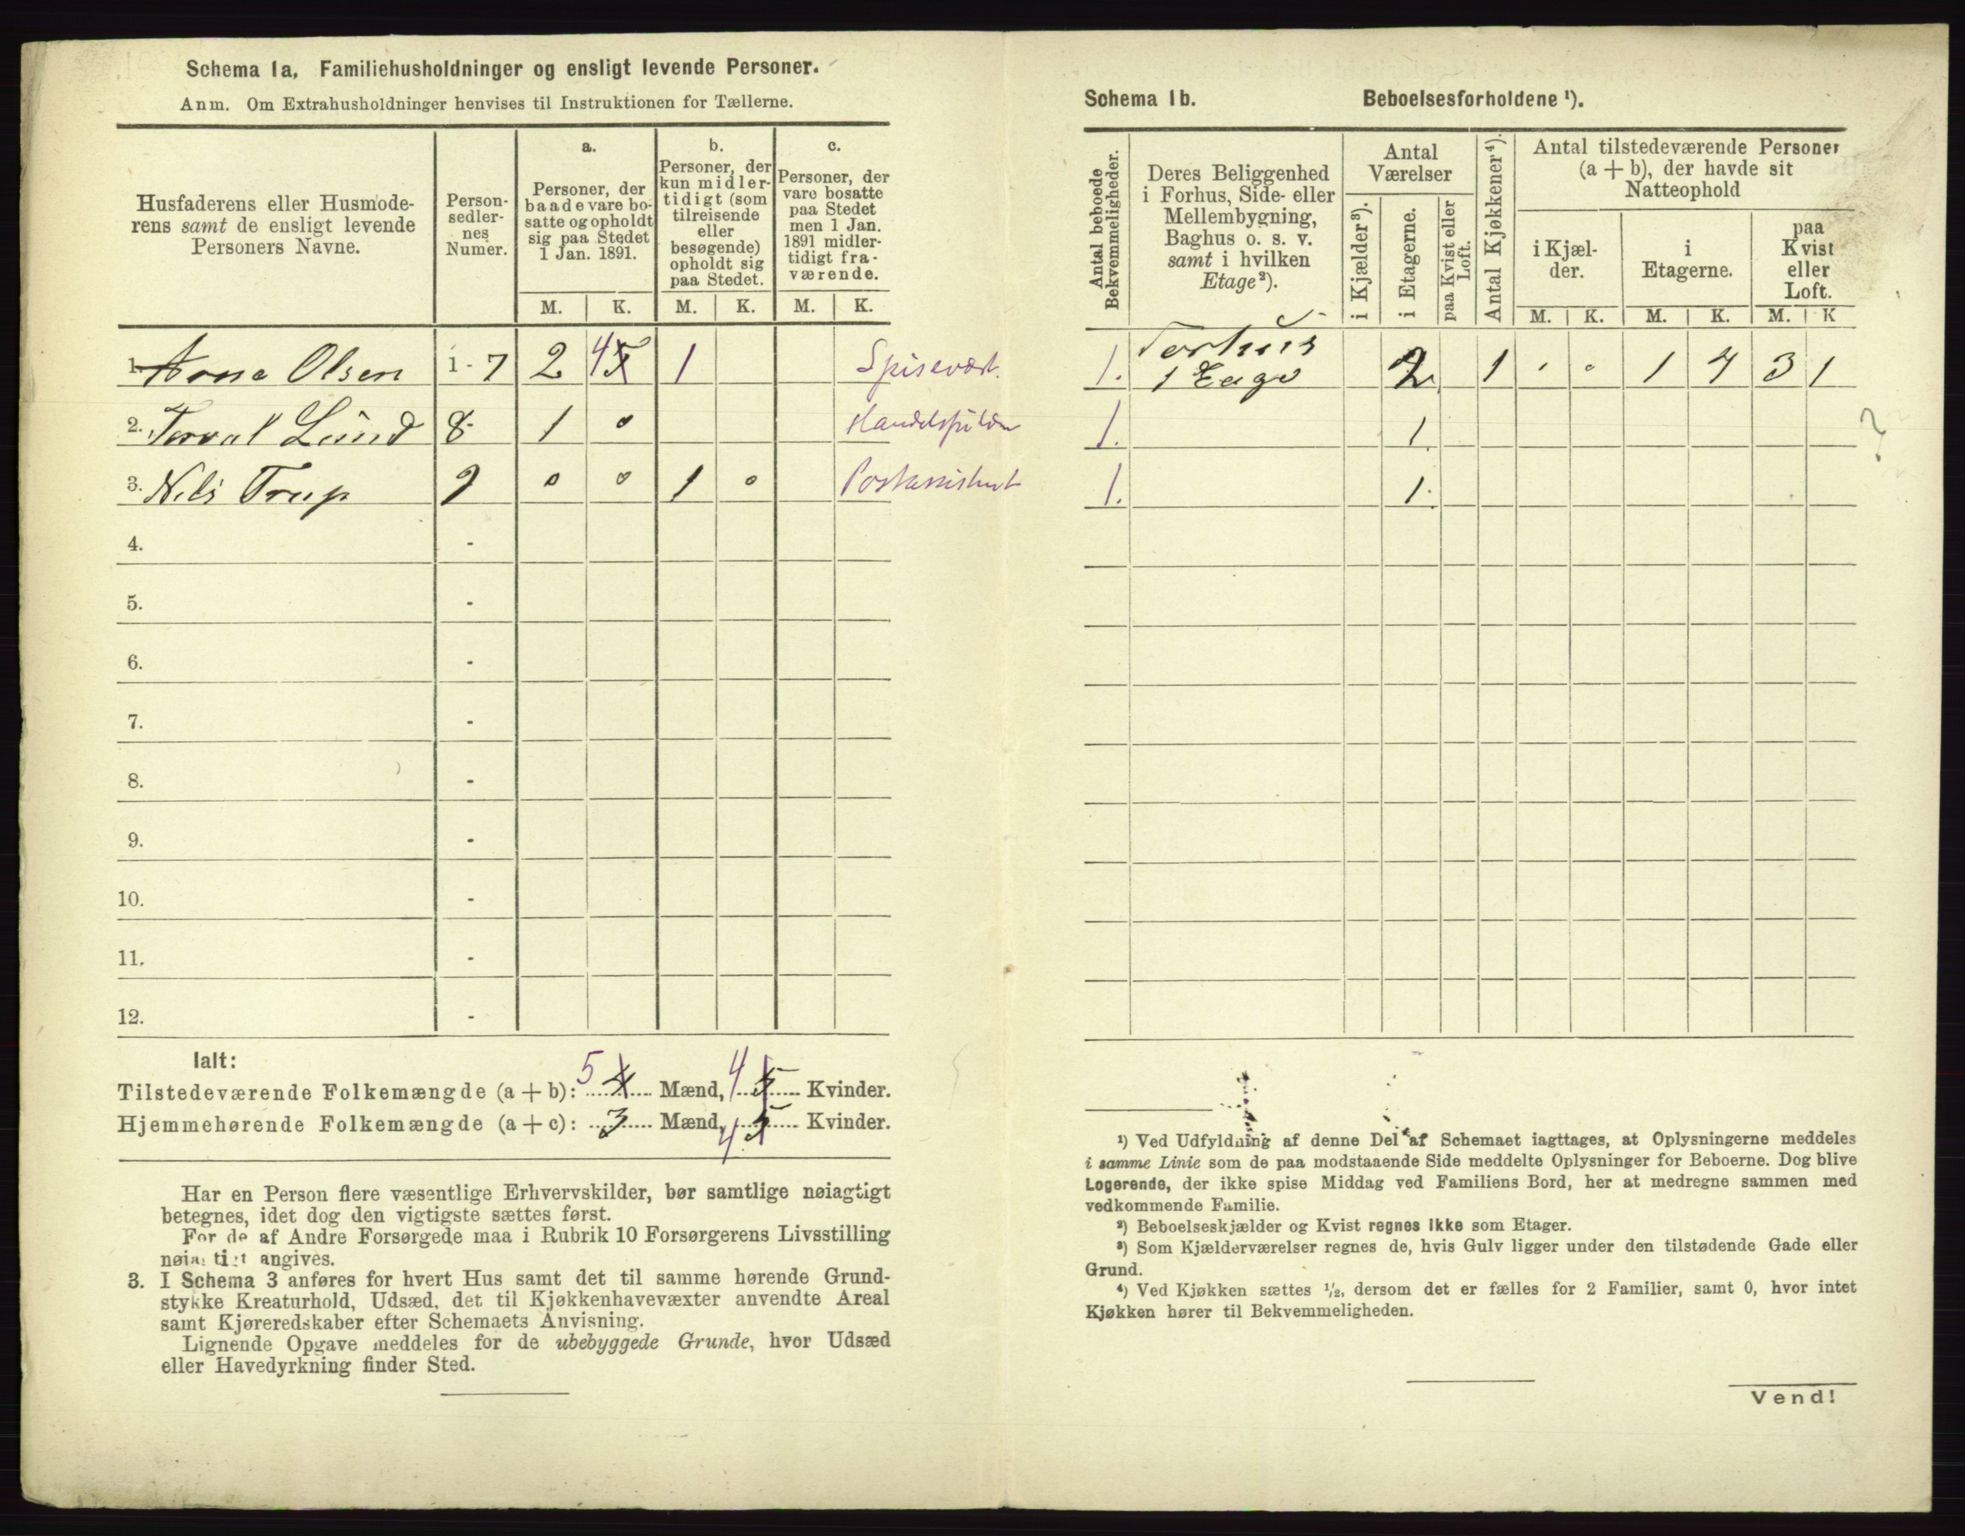 Schema 1a. Familiehusholdninger og ensligt levende Personer.
Anm. Om Extrahusholdninger henvises til Instruktionen for Tællerne.
Husfaderens eller Husmoderens samt de ensligt levende Personers Navne.
Personsedlernes Numer.
a.
Personer, der baade vare bosatte og opholdt sig paa Stedet 1 Jan. 1891.
b.
Personer, der kun midlertidigt (som tilreisende eller besøgende) opholdt sig paa Stedet.
c.
Personer, der vare bosatte paa Stedet men 1 Jan. 1891 midlertidigt fraværende.
M. K. M. K. M. K.
1. Olsen 1-7 2 4 5 1 Spisevært.
2. Lund 8 1 0
3. Nils Trup 9 0 0 1 0 Postassistent
4. -
5. -
6. -
7. -
8. -
9. -
10. -
11. -
12. -
Ialt:
Tilstedeværende Folkemængde (a + b): 5 4 Mænd, 4 5 Kvinder.
Hjemmehørende Folkemængde (a + c): 3 Mænd, 4 5 Kvinder.
Har en Person flere væsentlige Erhvervskilder, bør samtlige nøiagtigt
betegnes, idet dog den vigtigste sættes først.
For de af Andre Forsørgede maa i Rubrik 10 Forsørgerens Livsstilling
nøiagtigt angives.
3. I Schema 3 anføres for hvert Hus samt det til samme hørende Grund-
stykke Kreaturhold, Udsæd, det til Kjøkkenhavevæxter anvendte Areal
samt Kjøreredskaber efter Schemaets Anvisning.
Lignende Opgave meddeles for de ubebyggede Grunde, hvor Udsæd
eller Havedyrkning finder Sted.
Schema 1b. Beboelsesforholdene ¹).
Antal beboede Bekvemmeligheder.
Deres Beliggenhed i Forhus, Side- eller Mellembygning, Baghus o. s. v. samt i hvilken Etage²).
Antal Værelser
i Kjælder³).
i Etagerne.
paa Kvist eller Loft.
Antal Kjøkkener⁴).
Antal tilstedeværende Personer (a + b), der havde sit Natteophold
i Kjælder.
i Etagerne.
paa Kvist eller Loft.
M. K. M. K. M. K
1. Forhus
1 Etage 2 1 · · 1 4 3 1
1. 1.
1. 1.
?
¹) Ved Udfyldning af denne Del af Schemaet iagttages, at Oplysningerne meddeles
i samme Linie som de paa modstaaende Side meddelte Oplysninger for Beboerne. Dog blive
Logerende, der ikke spise Middag ved Familiens Bord, her at medregne sammen med
vedkommende Familie.
²) Beboelseskjælder og Kvist regnes ikke som Etager.
³) Som Kjælderværelser regnes de, hvis Gulv ligger under den tilstødende Gade eller
Grund.
⁴) Ved Kjøkken sættes ½, dersom det er fælles for 2 Familier, samt 0, hvor intet
Kjøkken hører til Bekvemmeligheden.
Vend!